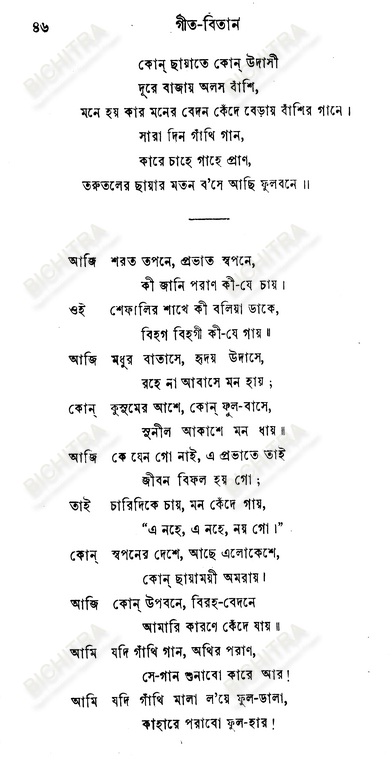 ৪৬
গীত-বিতান
কোন্ ছায়াতে কোন্ উদাসী
দূরে বাজায় অলস বাঁশি,
মনে হয় কার মনের বেদন কেঁদে বেড়ায় বাঁশির গানে।
সারা দিন গাঁথি গান,
কারে চাহে গাহে প্রাণ,
তরুতলের ছায়ার মতন ব'সে আছি ফুলবনে॥
আজি শরত তপনে, প্রভাত স্বপনে,
কী জানি পরাণ কী-যে চায়।
ওই শেফালির শাখে কী বলিয়া ডাকে,
বিহগ বিহগী কী-যে গায়॥
আজি মধুর বাতাসে, হৃদয় উদাসে,
রহে না আবাসে মন হায়;
কোন্ কুসুমের আশে, কোন্ ফুল-বাসে,
সুনীল আকাশে মন ধায়॥
আজি কে যেন গো নাই, এ প্রভাতে তাই
জীবন বিফল হয় গো;
তাই চারিদিকে চায়, মন কেঁদে গায়,
“এ নহে, এ নহে, নয় গো।”
কোন্ স্বপনের দেশে, আছে এলোকেশে,
কোন্ ছায়াময়ী অমরায়।
আজি কোন্ উপবনে, বিরহ-বেদনে
আমারি কারণে কেঁদে যায়॥
আমি যদি গাঁথি গান, অথির পরাণ,
সে-গান শুনাবো কারে আর!
আমি যদি গাঁথি মালা ল'য়ে ফুল-ডালা,
কাহারে পরাবো ফুল-হার!
BICHITRA
BICHITRA
BICHITRA
BICHITRA
BICHITRA
BICHITRA
BICHITRA
BICHITRA